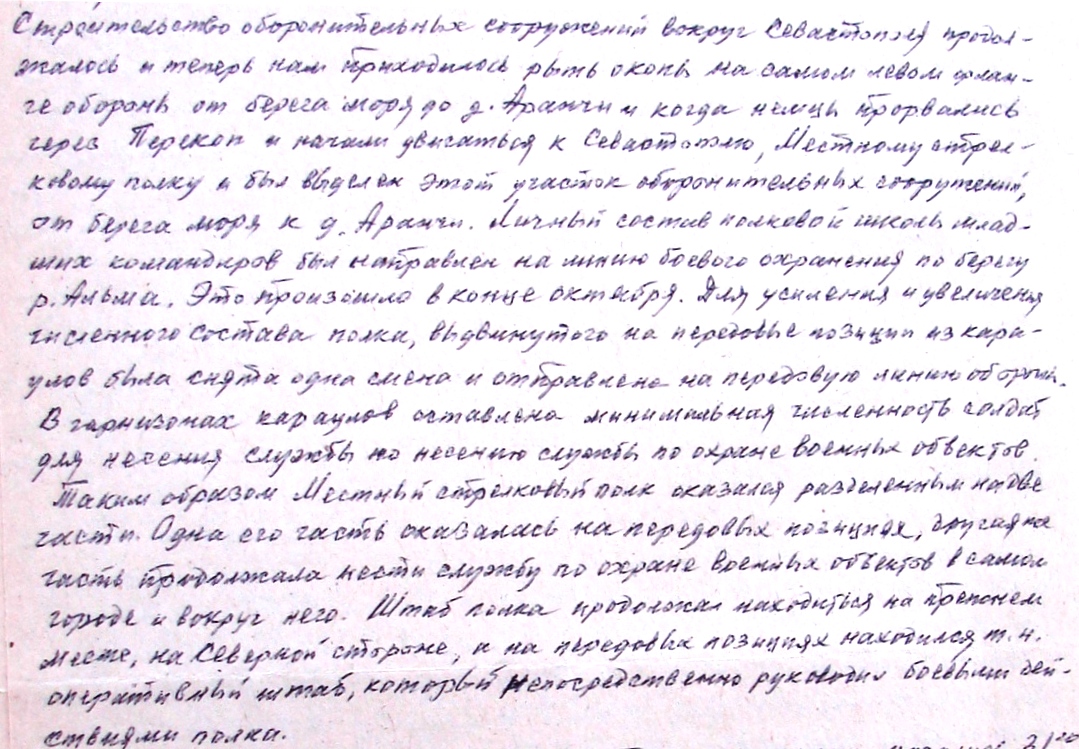 Строительство оборонительных сооружений вокруг Севастополя продол-
жалось и теперь нам приходилось рыть окопы на самом левом флан-
ге обороны от берега моря до д. Аранчи и когда немцы прорвались
через Перекоп и начали двигаться к Севастополю, Местному стрел-
ковому полку и был выделен этот участок оборонительных сооружений,
от берега моря к д. Аранчи. Личный состав полковой школы млад-
ших командиров был направлен на линию боевого охранения по берегу
р. Альма. Это произошло в конце октября. Для усиления и увеличения
численного состава полка, выдвинутого на передовые позиции из кара-
улов была снята одна смена и отправлена на передовую линию обороны.
В гарнизонах караулов оставлена минимальная численность солдат
для несения службы по несению службы по охране военных объектов.
Таким образом Местный стрелковый полк оказался разделенным на две
части. Одна его часть оказалась на передовых позициях, другая же
часть продолжала нести службу по охране военных объектов в самом
городе и вокруг него. Штаб полка продолжал находиться на прежнем
месте, на Северной стороне, и на передовых позициях находился т.н.
оперативный штаб, который непосредственно руководил боевыми дей-
ствиями полка.